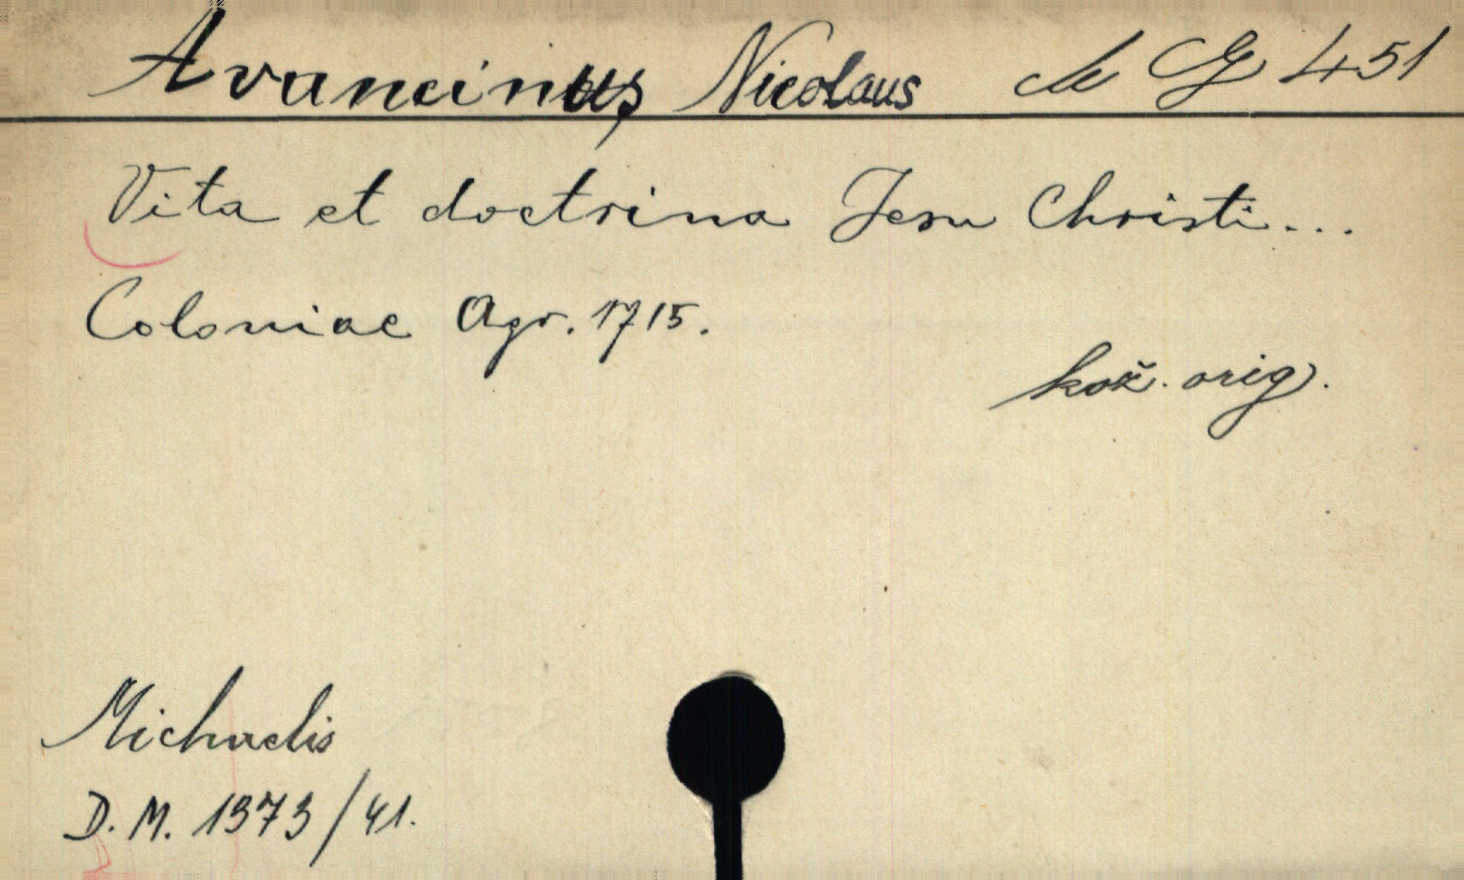 Avancinus Nicolaus de G 451
Vita et doctrina Jesu Christi...
Coloniae Agr. 1715.
kož. orig.
Michaelis
D. M. 1373/41.